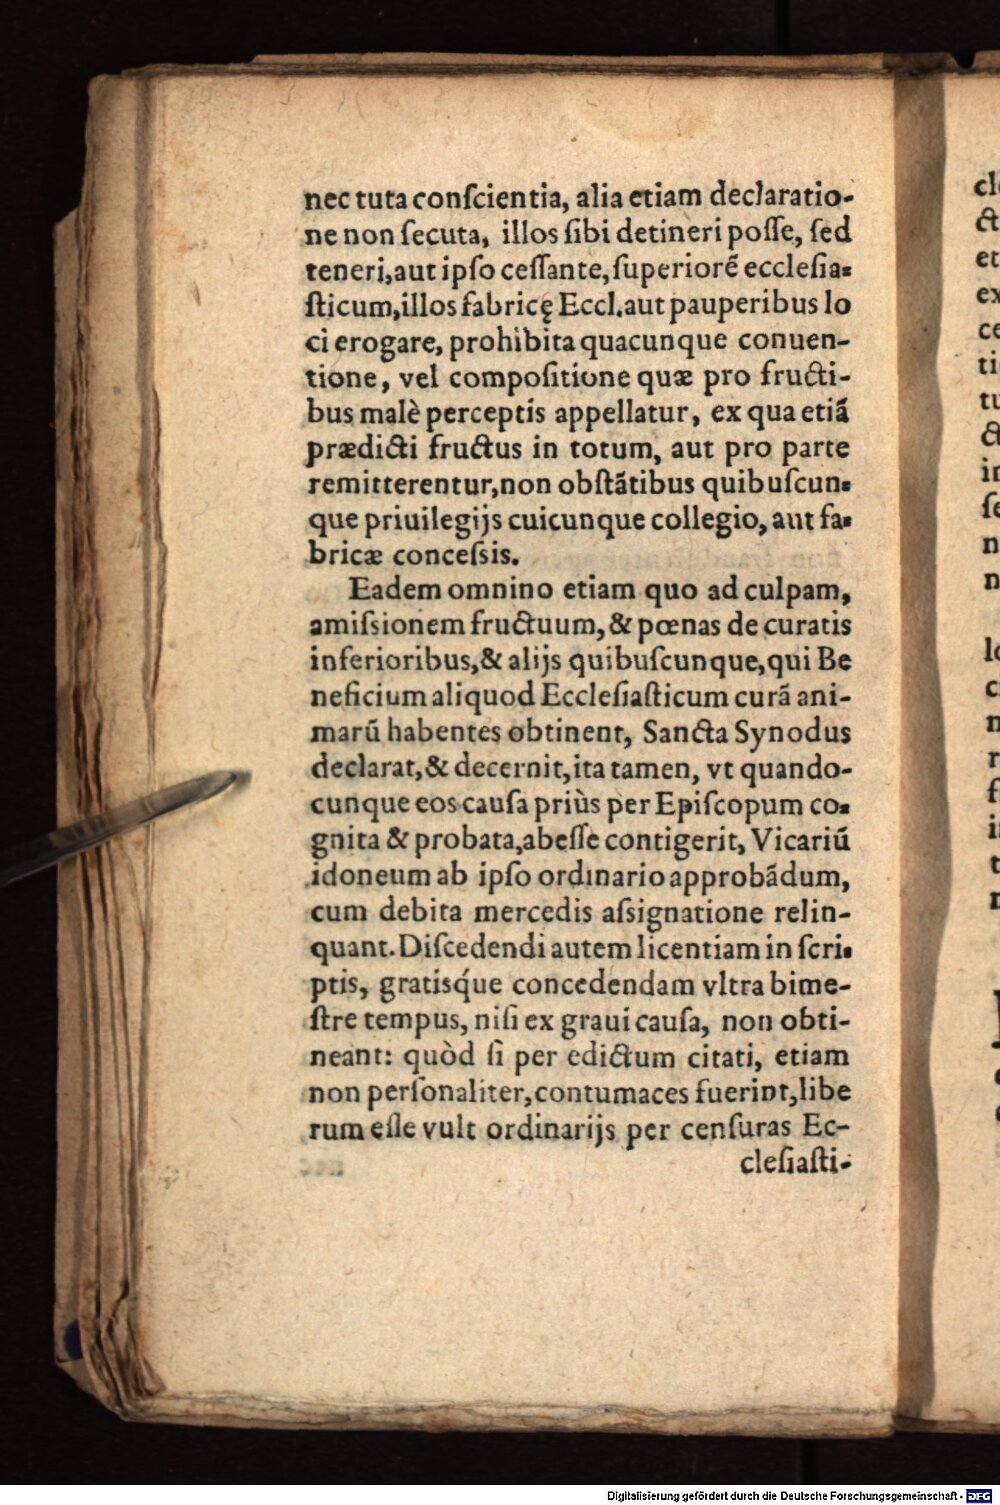 nec tuta conſcientia, alia etiam declaratio-
ne non ſecuta, illos ſibi detineri poſſe, ſed
teneri, aut ipſo ceſſante, ſuperiorē eccleſia-
ſticum, illos fabricę Eccl. aut pauperibus lo
ci erogare, prohibita quacunque conuen-
tione, vel compoſitione quæ pro fructi-
bus malè perceptis appellatur, ex qua etiā
prædicti fructus in totum, aut pro parte
remitterentur, non obſtātibus quibuſcun-
que priuilegijs cuicunque collegio, aut fa-
bricæ conceſsis.
Eadem omnino etiam quo ad culpam,
amiſsionem fructuum, & pœnas de curatis
inferioribus, & alijs quibuſcunque, qui Be
neficium aliquod Eccleſiaſticum curā ani-
marū habentes obtinent, Sancta Synodus
declarat, & decernit, ita tamen, vt quando-
cunque eos cauſa priùs per Epiſcopum co-
gnita & probata, abeſſe contigerit, Vicariū
idoneum ab ipſo ordinario approbādum,
cum debita mercedis aſsignatione relin-
quant. Diſcedendi autem licentiam in ſcri-
ptis, gratisq́ue concedendam vltra bime-
ſtre tempus, niſi ex graui cauſa, non obti-
neant: quòd ſi per edictum citati, etiam
non perſonaliter, contumaces fuerint, libe
rum eſſe vult ordinarijs per cenſuras Ec-
cleſiaſti-
Digitalisierung gefördert durch die Deutsche Forschungsgemeinschaft - DFG